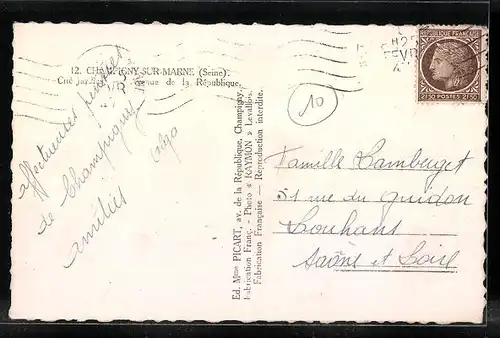 12. CHAMPIGNY-SUR-MARNE (Seine).
Cité jardins Avenue de la République.
affectueuses pensées
de Champigny
amitiés
Olga
Ed. Mme PICART, av. de la République, Champigny.
Fabrication Franç. - Photo « RAYMON » Levallois.
Fabrication Française — Reproduction interdite.
10
25
REPUBLIQUE FRANÇAISE
2f50 POSTES 2f50
Famille Lambuget
51 rue du guidon
Louhans
Saône et Loire